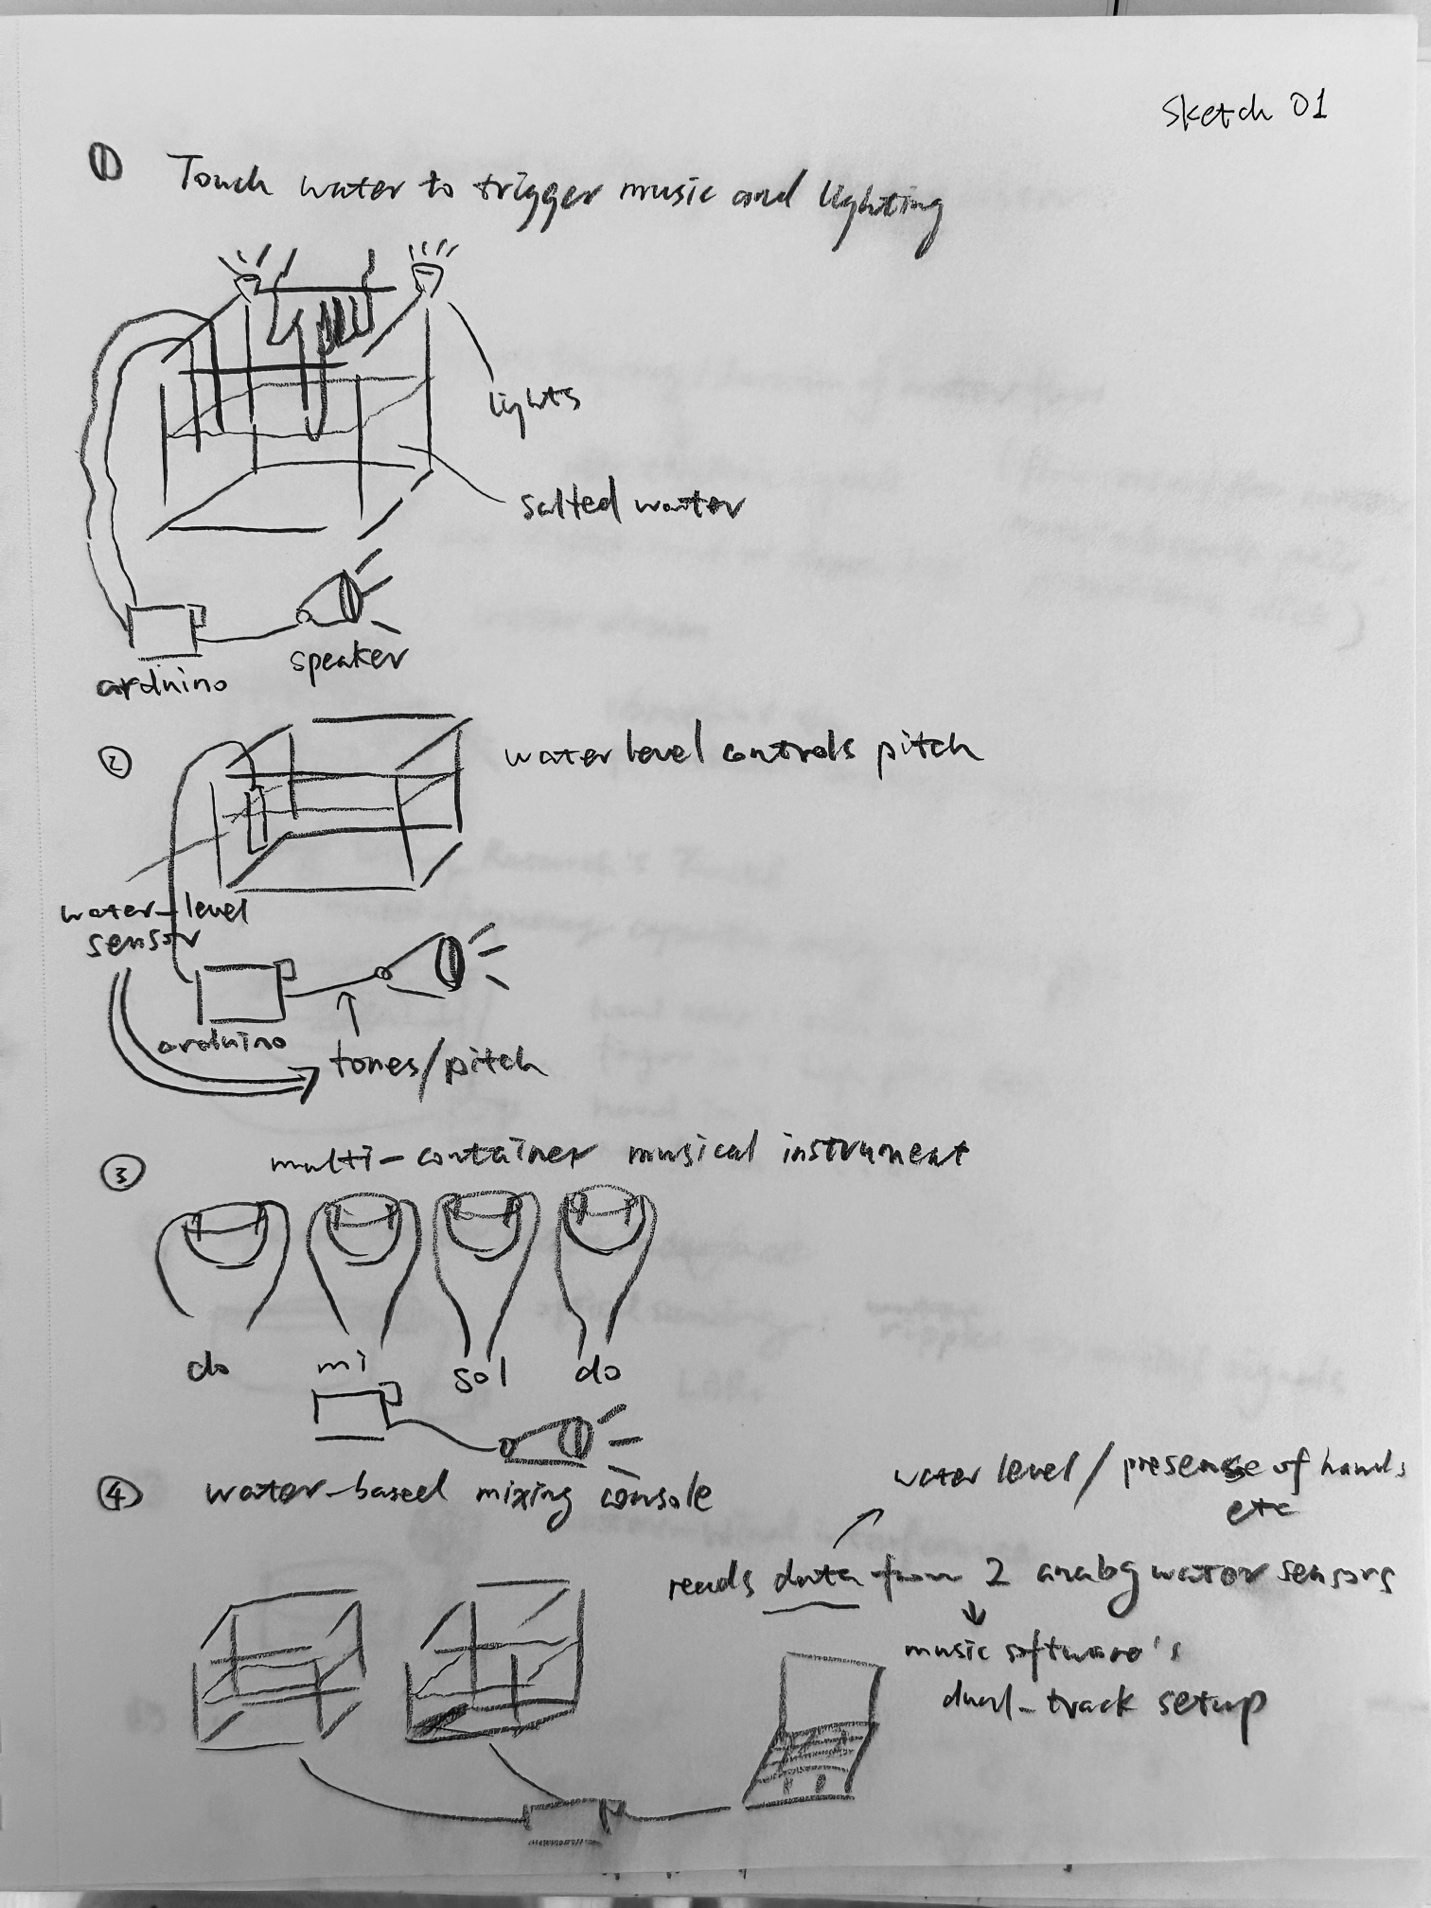 Sketch 01
① Touch water to trigger music and lighting
lights
salted water
speaker
arduino
② water level controls pitch
water-level
sensor
arduino
tones/pitch
③ multi-container musical instrument
do mi sol do
④ water-based mixing console
water level / presense of hands
etc
reads data from 2 analog water sensors
music software's
dual-track setup